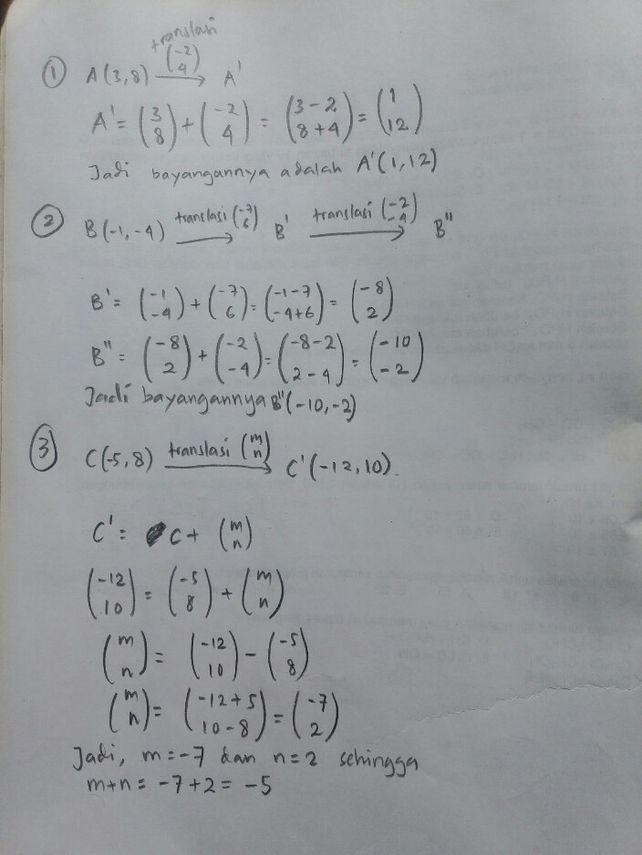 translasi
① A(3,8) →(-2 4) A'
A' = (3 8) + (-2 4) = (3-2 8+4) = (1 12)
Jadi bayangannya adalah A'(1,12)
② B(-1,-4) translasi (-7 6) → B' translasi (-2 -4) → B''
B' = (-1 -4) + (-7 6) = (-1-7 -4+6) = (-8 2)
B'' = (-8 2) + (-2 -4) = (-8-2 2-4) = (-10 -2)
Jadi bayangannya B''(-10,-2)
③ C(-5,8) translasi (m n) → C'(-12,10).
C' = C + (m n)
(-12 10) = (-5 8) + (m n)
(m n) = (-12 10) - (-5 8)
(m n) = (-12+5 10-8) = (-7 2)
Jadi, m=-7 dan n=2 sehingga
m+n = -7+2 = -5